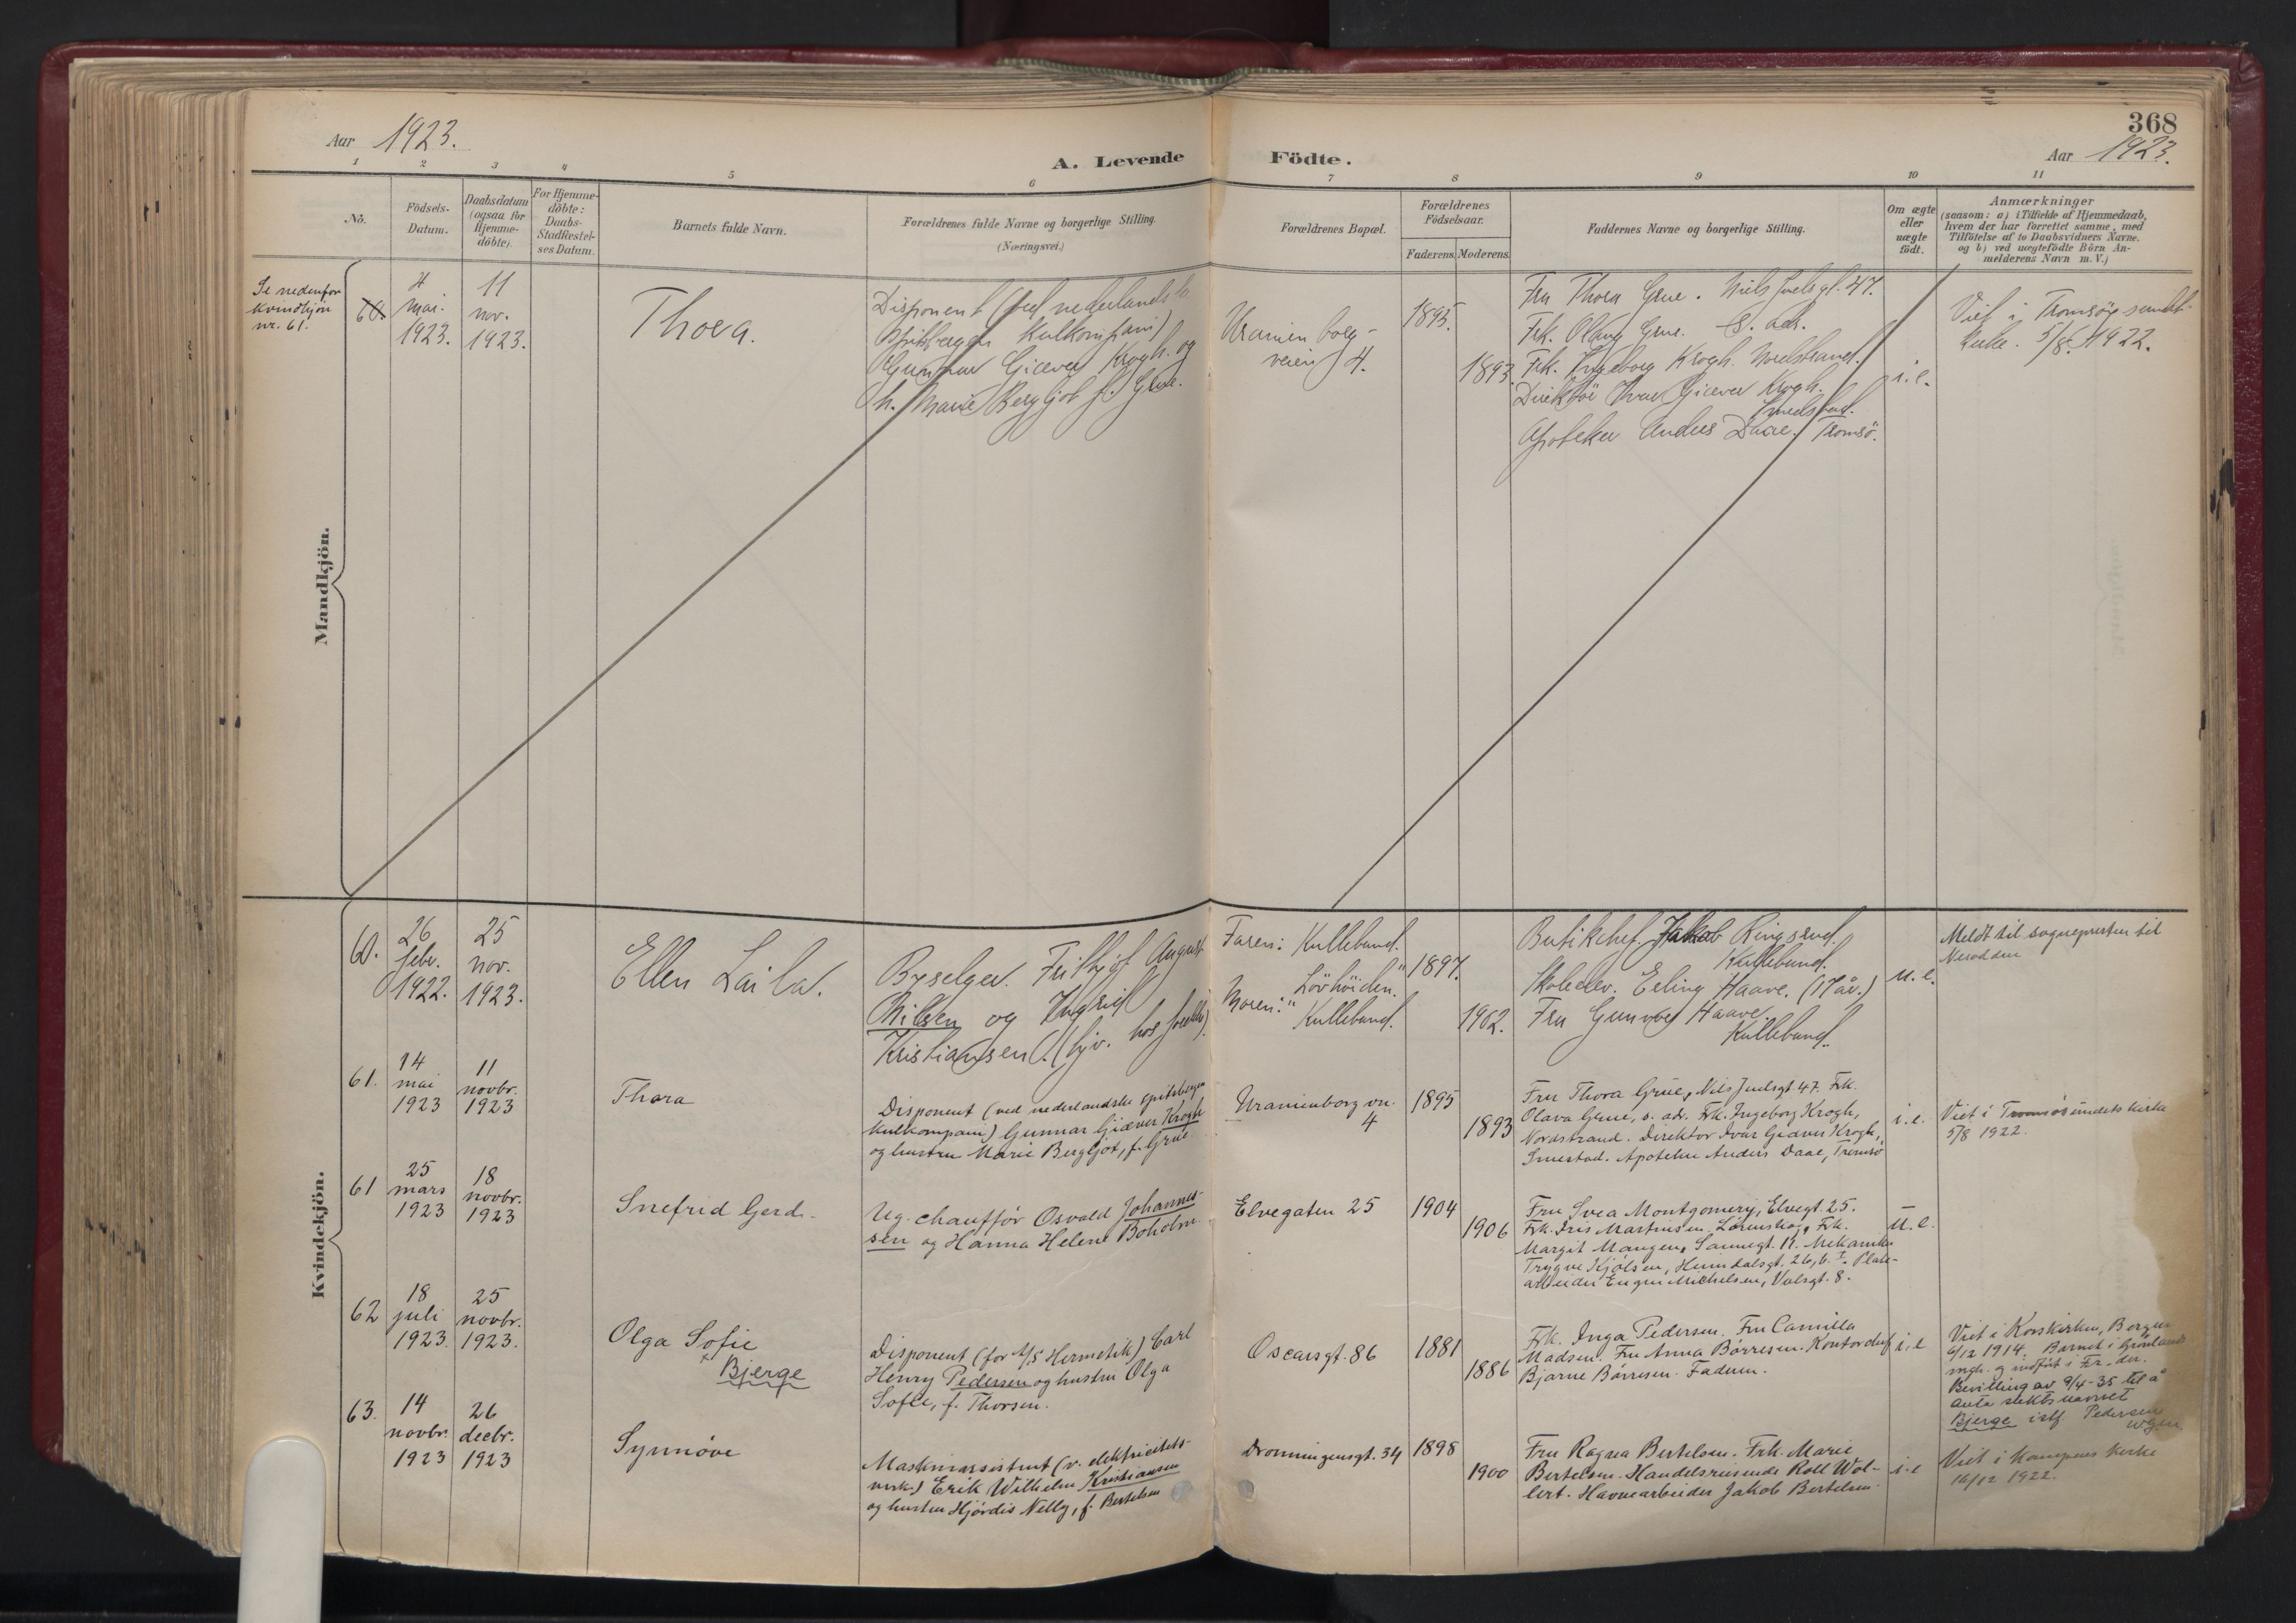 368
Aar 1923.
A. Levende Födte.
Aar 1923.
1 2 3 4 5 6 7 8 9 10 11
No.
Födsels-
Datum.
Daabsdatum
(ogsaa for
Hjemme-
döbte).
For Hjemme-
döbte:
Daabs-
Stadfestel-
ses Datum.
Barnets fulde Navn.
Forældrenes fulde Navne og borgerlige Stilling.
(Næringsvei.)
Forældrenes Bopæl.
Forældrenes
Födselsaar.
Faderens. Moderens.
Faddernes Navne og borgerlige Stilling.
Om ægte
eller
uægte
födt.
Anmærkninger
(saasom: a) i Tilfælde af Hjemmedaab,
hvem der har forrettet samme, med
Tilföielse af to Daabsvidners Navne.
og b) ved uægtefödte Börn An-
melderens Navn m. V.)
Mandkjön.
Se nedenfor
kvindkjön
nr. 61.
60.
4
mai.
1923.
11
nov.
1923.
Thora.
Disponent (ved nederlandske
Spitsbergen Kulkompani)
Gunnar Giæver Krogh. og
h. Marie Bergljot f. Grue.
Uranienborg-
veien 4.
1895.
1893.
Fru Thora Grue. Niels Juelsgt. 47.
Frk. Olava Grue. s. adr.
Frk. Ingeborg Krogh. Nordstrand.
Direktör Ivar Giæver Krogh.
Smedstad.
Apoteker Anders Daae. Tromsö.
i.e.
Viet i Tromsöysundet
kirke. 5/8 1922.
Kvindekjön.
60.
26
febr.
1922.
25
nov.
1923.
Ellen Laila.
Byselger. Frithjof August
Nilsen og Ingrid
Kristiansen. (hjv. hos foreldre).
Faren: Kullebund.
Lövhöiden.
Moren: "
Kullebund.
1897.
1902.
Butikchef Jakob Ringsrud.
Kullebund.
Skoleelev. Erling Haave. (17 år.)
Fru Gunvor Haave.
Kullebund.
u.e.
Meldt til sognepresten til
Nesodden
61.
14
mai
1923
11
novbr.
1923
Thora
Disponent (ved nederlandske spitsbergen
kulkompani) Gunnar Giæver Krogh
og hustru Marie Bergljot, f. Grue
Uranienborg vn.
4
1895
1893
Fru Thora Grue, Nils Juelsgt. 47. Frk.
Olava Grue, s. adr. Frk. Ingeborg Krogh,
Nordstrand. Direktor Ivar Giæver Krogh,
Smestad. Apoteker Anders Daae, Tromsø
i.e.
Viet i Tromsøsundets kirke
5/8 1922.
61
25
mars
1923
18
novbr.
1923
Snefrid Gerd.
Ug. chauffør Osvald Johannes-
sen og Hanna Helene Boholm
Elvegaten 25
1904
1906
Fru Svea Montgomery, Elvegt. 25.
Frk. Iris Martinsen, Lørenskog, Frk.
Margit Mangen, Sannergt. 11. Mekaniker
Trygve Kjølsen, Heimdalsgt. 26, b. I. Plate-
arbeider Eugen Michelsen, Valsgt. 8.
u.e.
62
18
juli
1923.
25
novbr.
1923.
Olga Sofie
x Bjerge
Disponent (for A/S Hermetik) Carl
Henry Pedersen og hustru Olga
Sofie, f. Thorsen.
Oscarsgt. 86
1881
1886
Frk. Inga Pedersen. Fru Camilla
Madsen. Fru Anna Børresen. Kontorchef
Bjarne Børresen. Faderen.
i.e
Viet i Korskirken, Bergen
6/12 1914. Barnet i Grönlands
mgh. og indført i Fr. der.
Bevilling av 9/4-35 til å
anta slektsnavnet
Bjerge istf. Pedersen
63.
14
novbr.
1923
26
decbr.
1923
Synnøve
Maskinassistent (v. elektricitets-
verk.) Erik Wilhelm Kristiansen
og hustru Hjørdis Nelly, f. Bertelsen
Dronningensgt. 34
1898
1900
Fru Ragna Bertelsen. Frk. Marie
Bertelsen. Handelsreisende Rolf Wol-
lert. Havnearbeider Jakob Bertelsen.
i.e
Viet i Kampens kirke
16/12 1922.